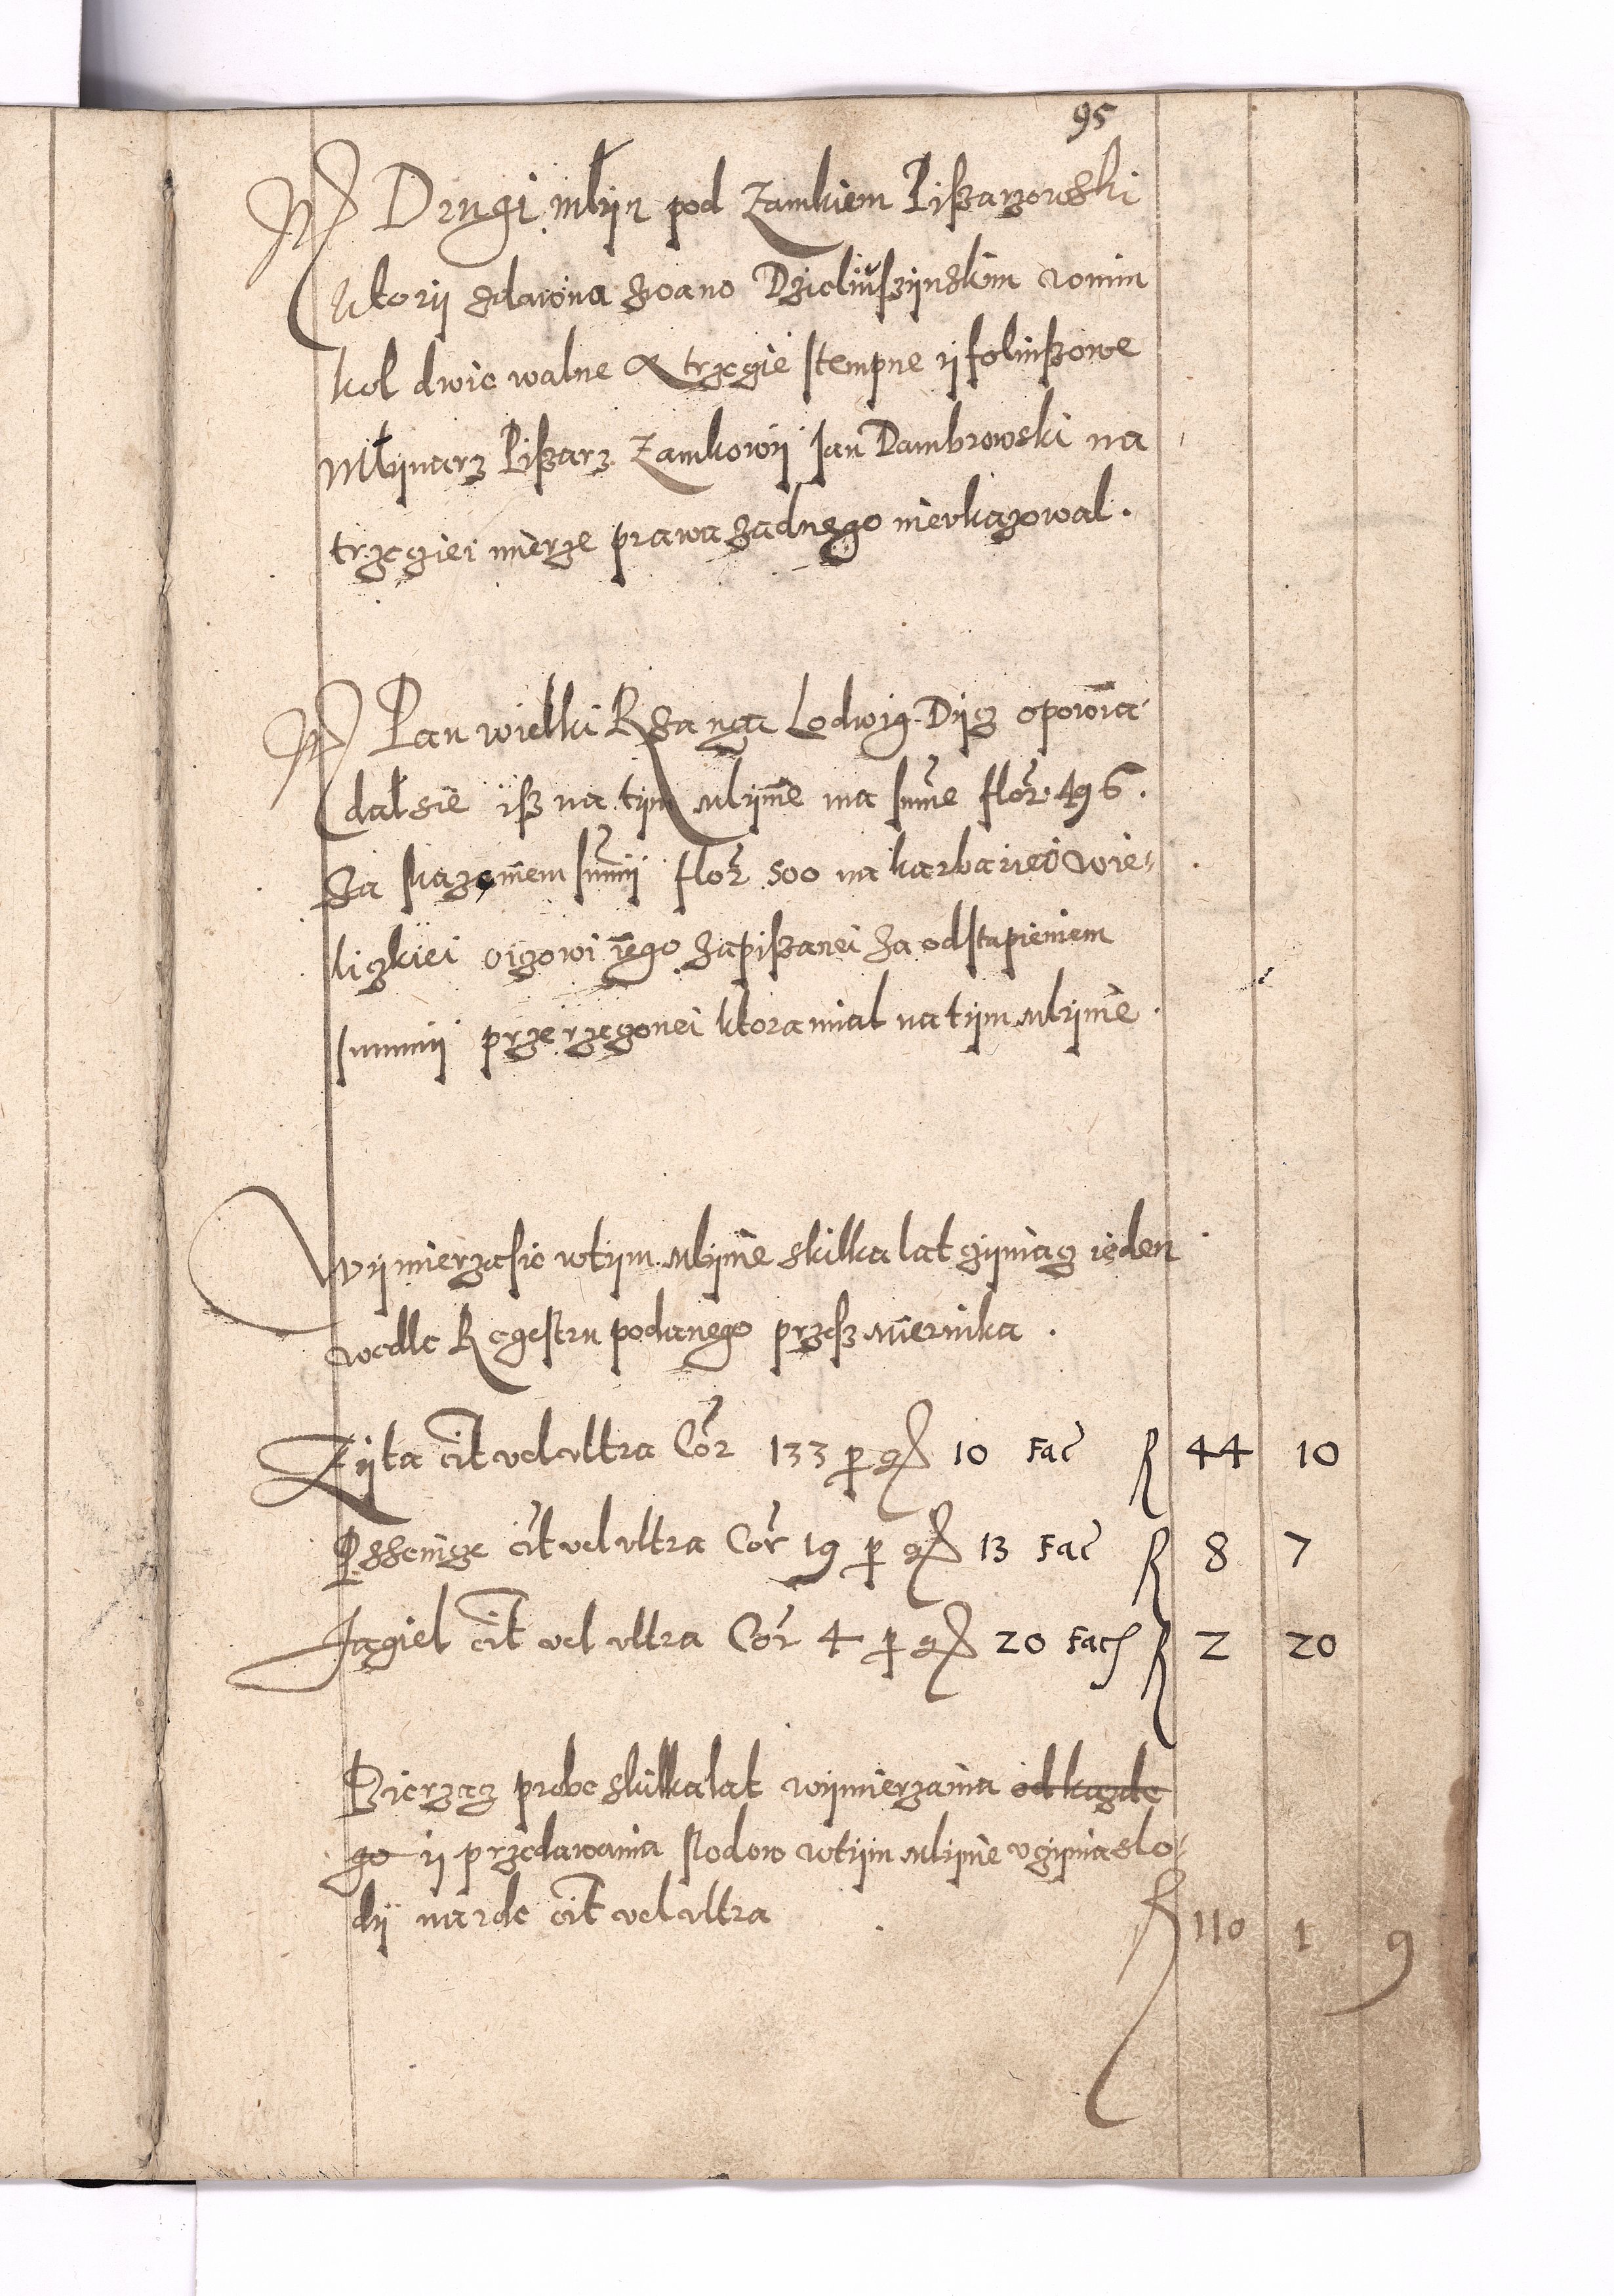 95
Drugi młijn pod Zamkiem Pißarzowski
ktorij zdawna zwano Dzieliußijnskim womim
kol dwie walne a trzecie stempne ij folußowe
Młijnarz Pißarz Zamkowij Jan Dambrowski na
trzeciei mierze prawa zadnego nieukazowal.
Pan wielki Rządca Lodwig Dijcz opowia
dał sie iß na tijm mlijnie ma sume flor 496.
za skazaniem sumij flor 500 na karbariei wie
liczkiei oicowi iego zapißanei za odstąpieniem
summij przerzeczonei ktora mial na tijm mlijnie.
Wijmierza sie wtijm mlijnie skilka lat czijniącz ieden
wedle Regestru podanego przesz miernika.
Zijta cit vel ultra Cor 133 per gr 10 Fac R 44 10
Pssenice cit vel ultra Cor 19 per gr 13 Fac R 8 7
Jagiel cit vel ultra Cor 4 per gr 20 Fac R 2 20
Bierzącz probe skilka lat wijmierzania od kazde
go ij przedawania słodow wtijm mlijnie uczijnia slo
dij narde cit vel ultra R 110 1 9